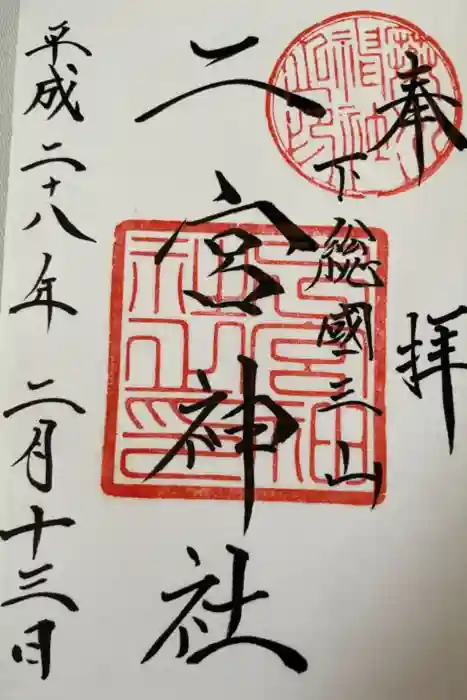 奉拝
下総國三山
二宮神社
平成二十八年二月十三日